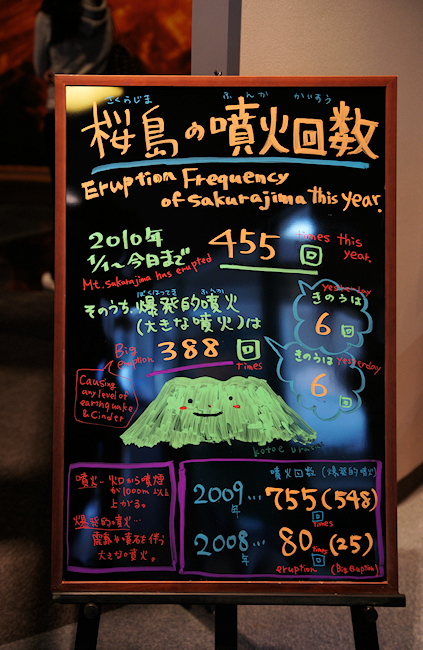 さくらじま ふんか かいすう
桜島の噴火回数
Eruption Frequency
of Sakurajima this year.
2010年
1/1〜今日まで 455回 times this year.
Mt. Sakurajima has erupted
ばくはつてき ふんか
そのうち、爆発的噴火
(大きな噴火)は
Big eruption 388回 times
yesterday
きのうは
6回
きのうは yesterday
6回
Causing
any level of
earthquake
& Cinder
噴火…火口から噴煙
が1000m以上
上がる。
爆発的噴火…
震動や噴石を伴う
大きな噴火。
噴火回数(爆発的噴火)
2009年…755(548)
回 times
2008年…80(25)
times 回
eruption (Big eruption)